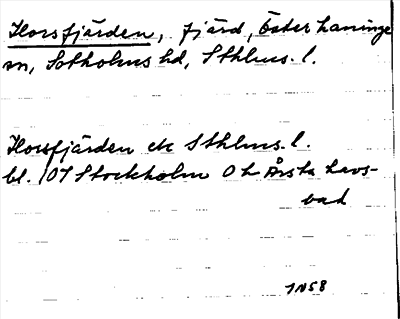 Horsfjärden, fjärd, Österhaninge
sn, Sotholms hd, Sthlms. l.
Horsfjärden ek Sthlms. l.
bl. 107 Stockholm O h Årsta havs-
bad
1N58